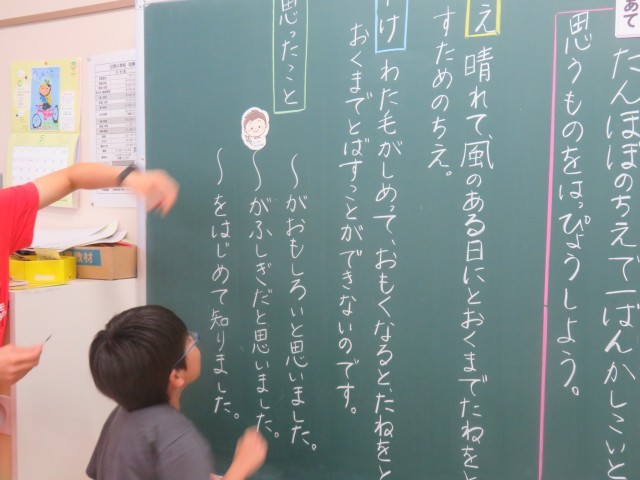 あて
たんぽぽのちえで一ばんかしこいと
思うものをはっぴょうしよう。
え
晴れて、風のある日にとおくまでたねをと
すためのちえ。
け
わた毛がしめって、おもくなると、たねをと
おくまでとばすことができないのです。
思ったこと
〜がおもしろいと思いました。
〜がふしぎだと思いました。
〜をはじめて知りました。
教材
5